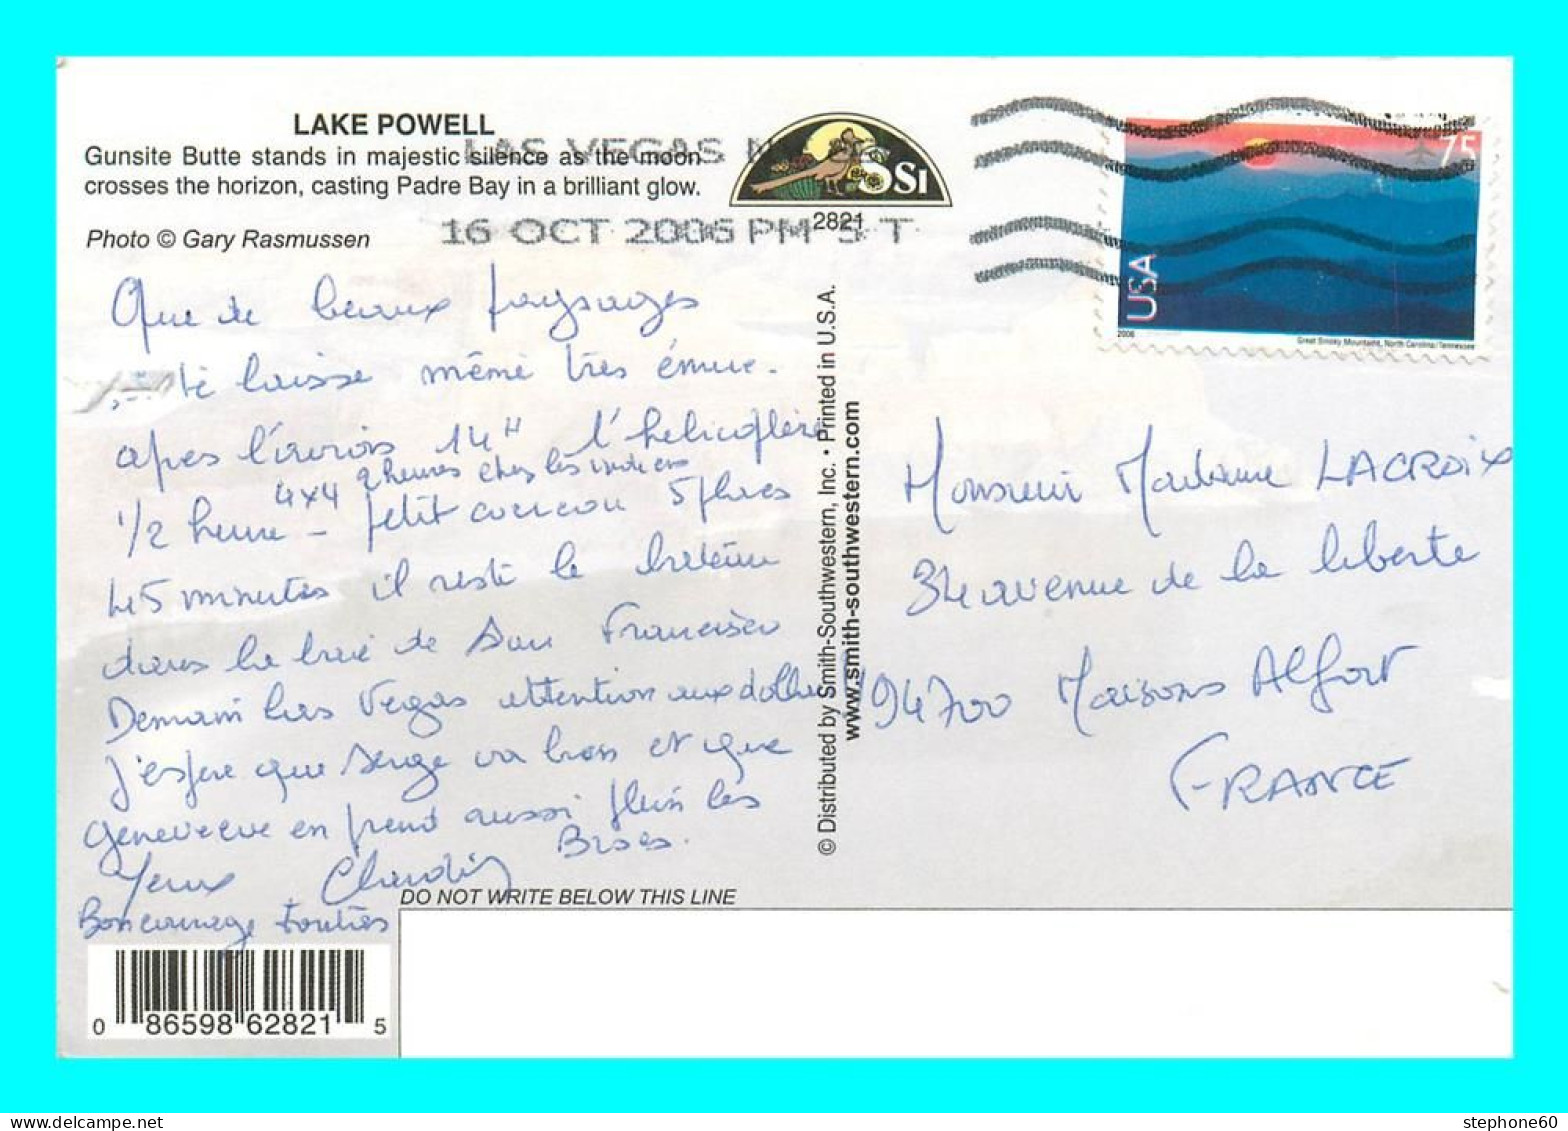 LAKE POWELL
Gunsite Butte stands in majestic silence as the moon
crosses the horizon, casting Padre Bay in a brilliant glow.
Photo © Gary Rasmussen
LAS VEGAS N
16 OCT 2006 PM 5 T
SSI
2821
75
USA
2006
Great Smoky Mountains, North Carolina/Tennessee
Que de beaux paysages
te laisse même très émue.
apres l'avion 14H l'helicoptère
4x4 2 heures chez les indiens
1/2 heure - petit coucou 5 places
45 minutes il reste le bateau
dans la baie de San Francisco
Demain Las Vegas attention aux dollars
j'espere que Serge va bien et que
Genevieve en prend aussi plein les
yeux Claudie Bises.
Bon courage toutes
© Distributed by Smith-Southwestern, Inc. • Printed in U.S.A.
www.smith-southwestern.com
Monsieur Madame LACROIX
34 avenue de la liberte
94700 Maisons Alfort
FRANCE
DO NOT WRITE BELOW THIS LINE
0 86598 62821 5
stephone60